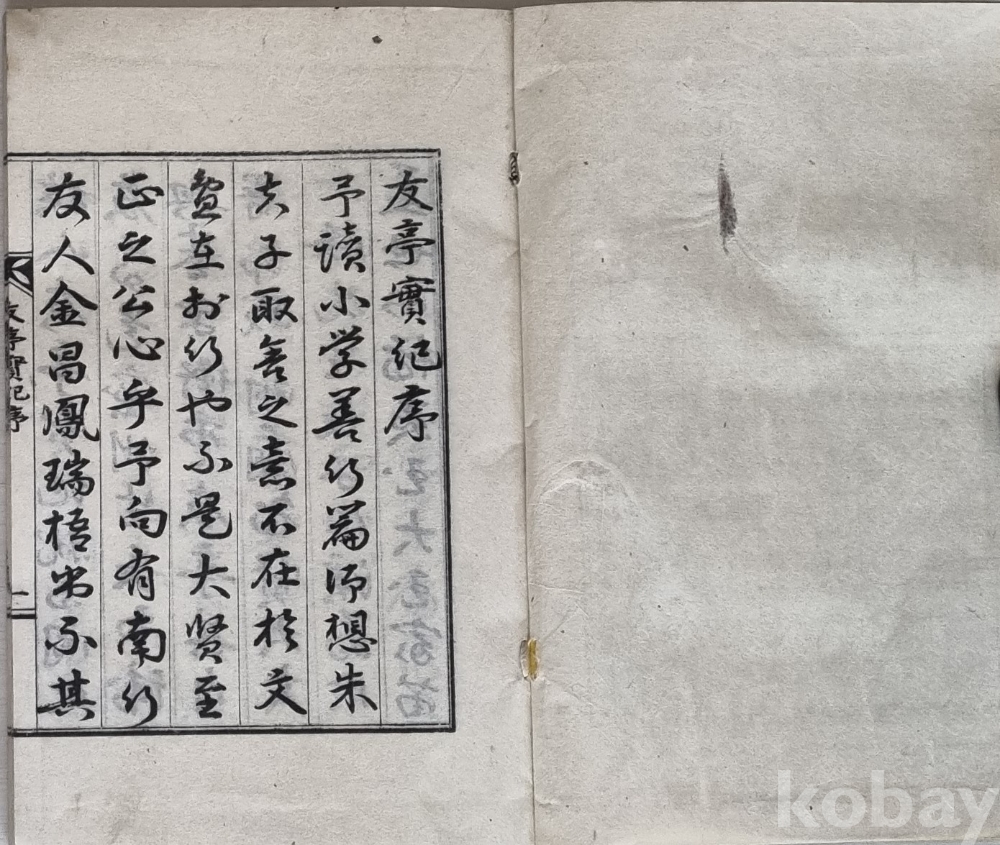 友亭實紀序
予讀小学善行篇仰想朱
夫子取舍之意不在於文
在於行也不是大贤至
正之公心乎予向有南行
友人金昌鳳瑞梧出示其
友亭實紀序
一
kobay